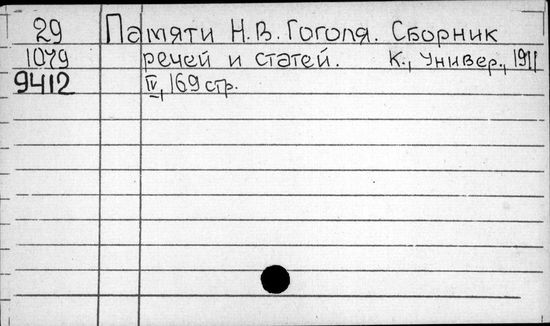 29 Памяти Н.В. Гоголя. Сборник
1079 речей и статей. К., Универ., 1911
9412 IV, 169 стр.